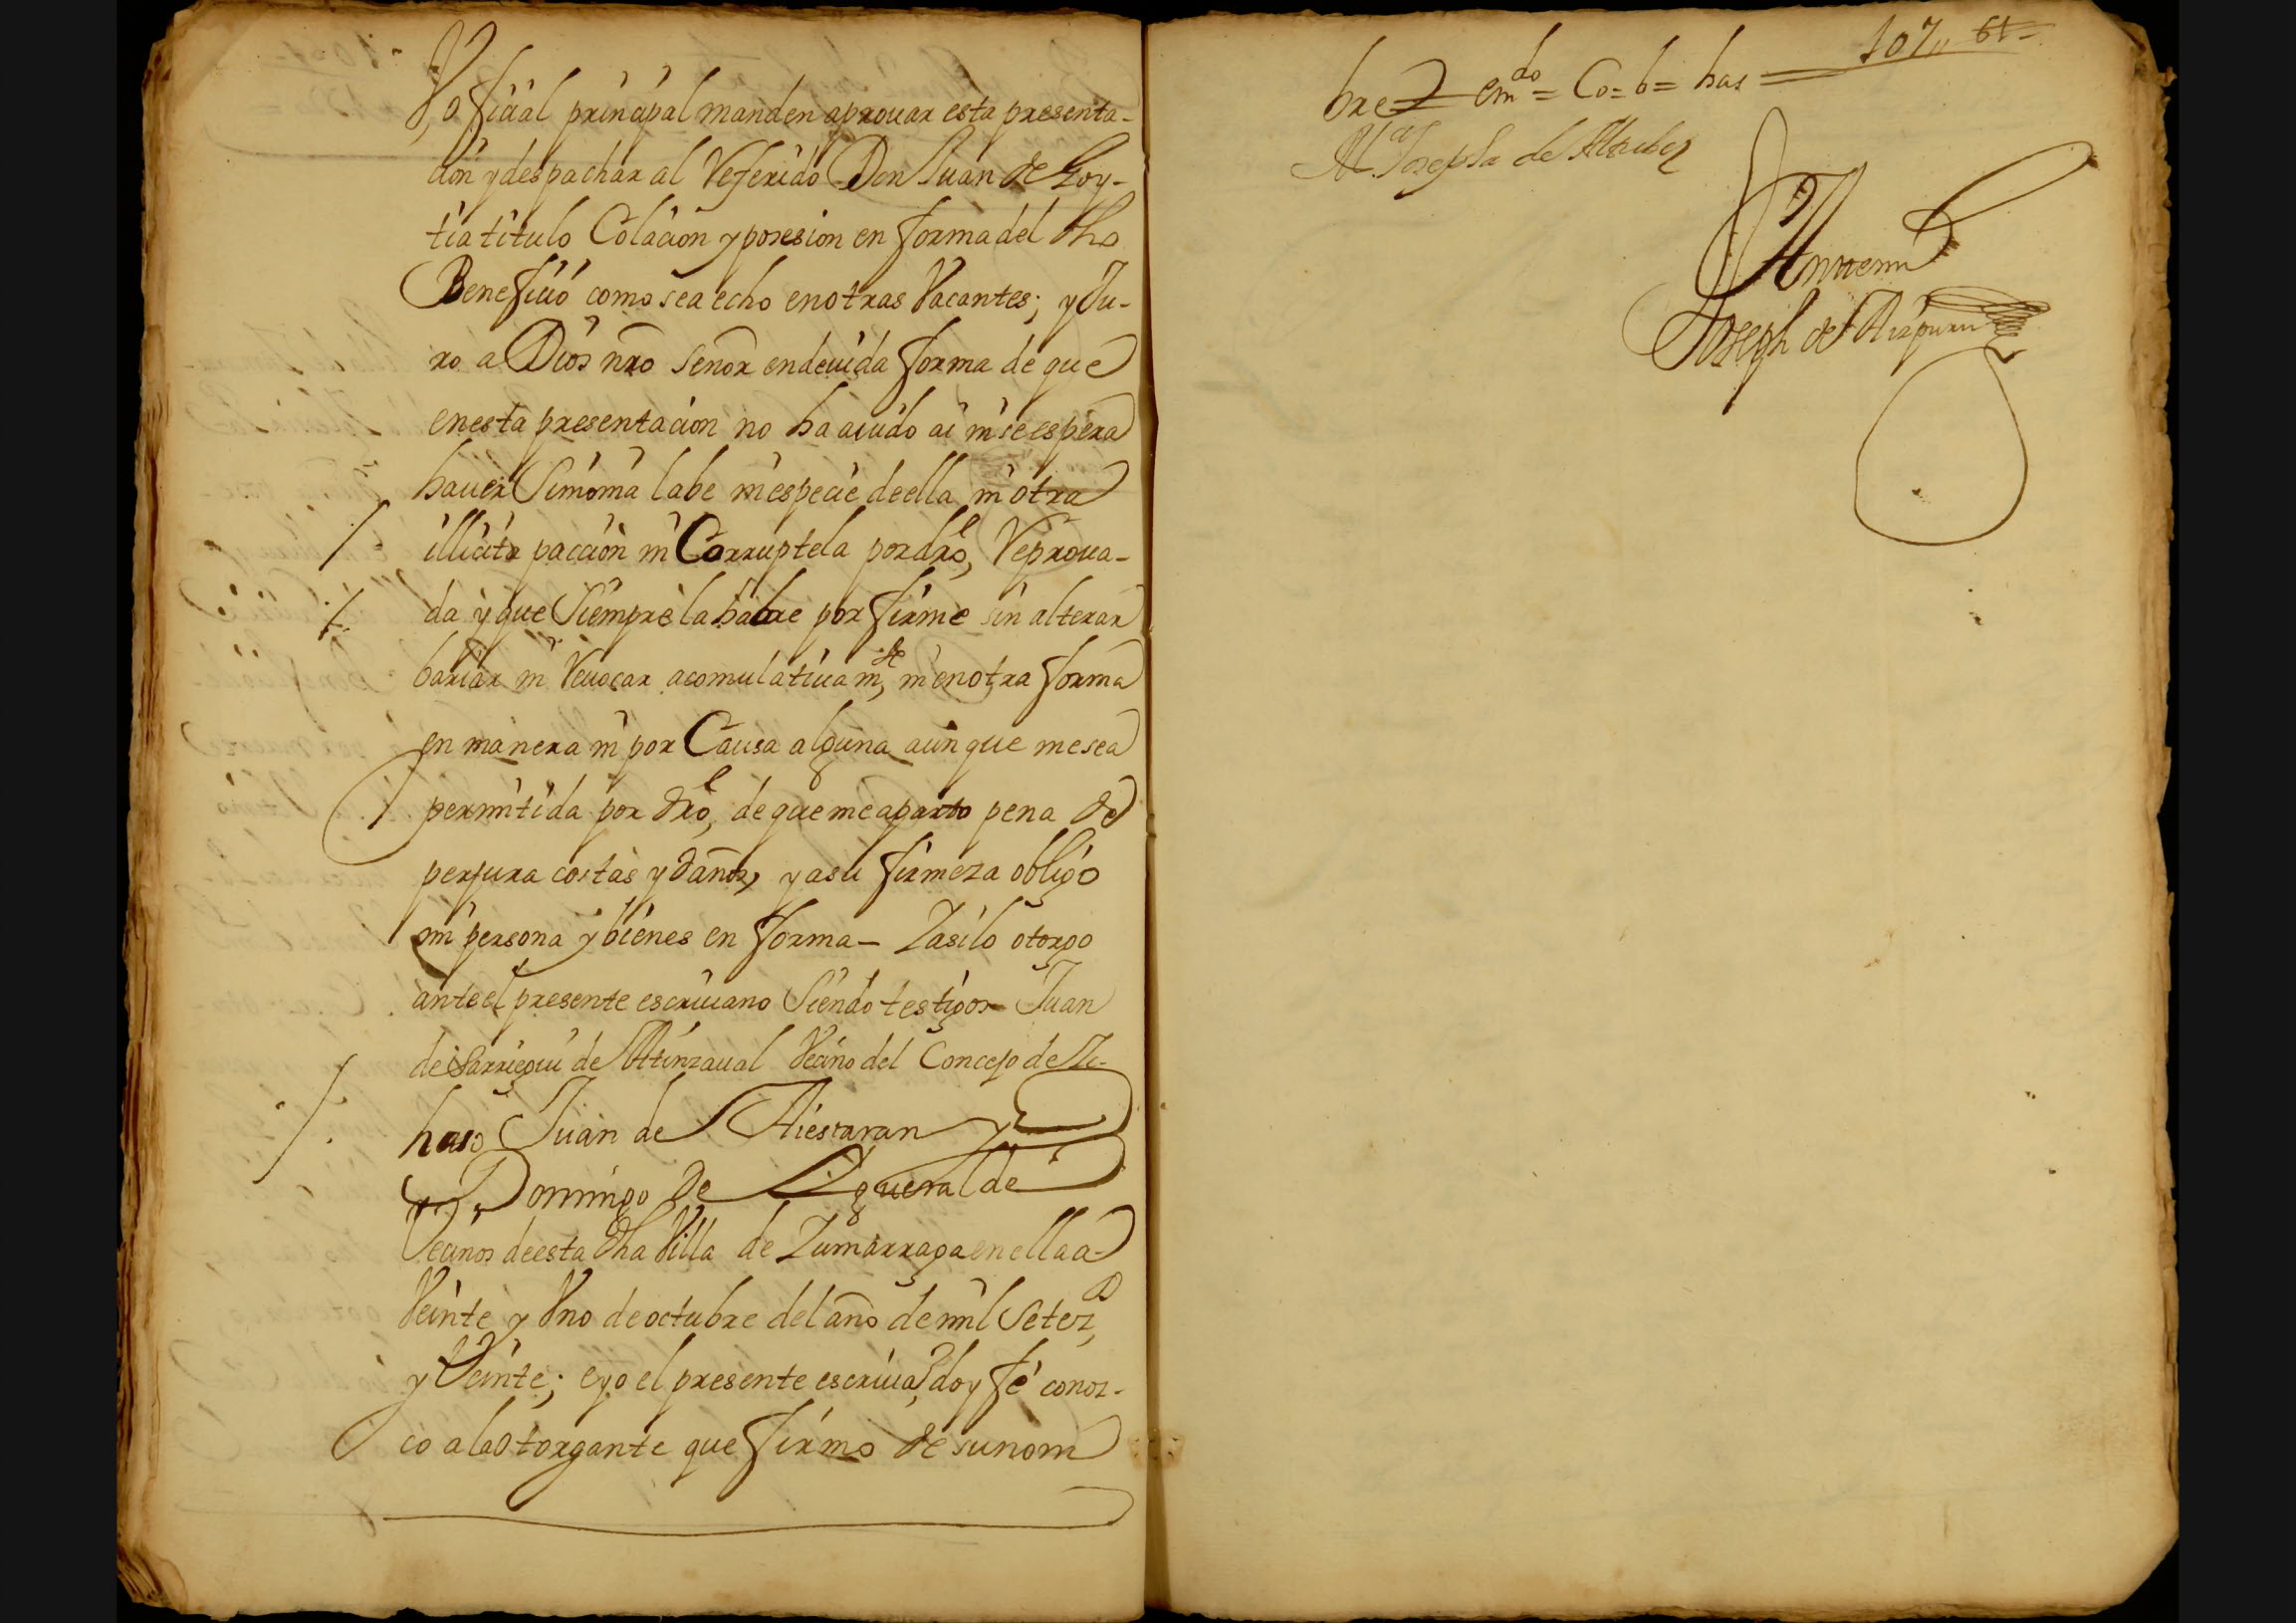 Y, oficial principal manden aprouar esta presenta-
cion y despachar al Referido Don Juan de Goy-
tia titulo Colacion y posesion en forma del dho
Beneficio como sea echo en otras Vacantes; y Ju-
ro a Dios nro señor en deuida forma de que
en esta presentacion no ha auido ai ni se espera
hauer Simonia labe ni especie de ella ni otra
illicita paccion ni Corruptela por dro, Reproua-
da y que Siempre la habre por firme sin alterar
bariar ni Reuocar acomulatiuamte, ni en otra forma
en manera ni por Causa alguna aunque me sea
permitida por dro, de que me aparto pena de
perjura costas y daños, y a su firmeza obligo
mi persona y bienes en forma - Y asi lo otorgo
ante el presente escriuano Siendo testigos Juan
de Sarriegui de Atinzaual Vecino del Concejo de
has Juan de Aiestaran y
y Domingo de Legueralde
Vecinos de esta dha Villa de Zumarraga en ella a
Veinte y Vno de octubre del año de mil Setezs
y Veinte; e yo el presente escriuano doy fé conoz-
co a la otorgante que firmo de su nom
107 61
bre = emdo = Co = b = has =
Ma Josepha de
Ante mi
Joseph de Aizpuru